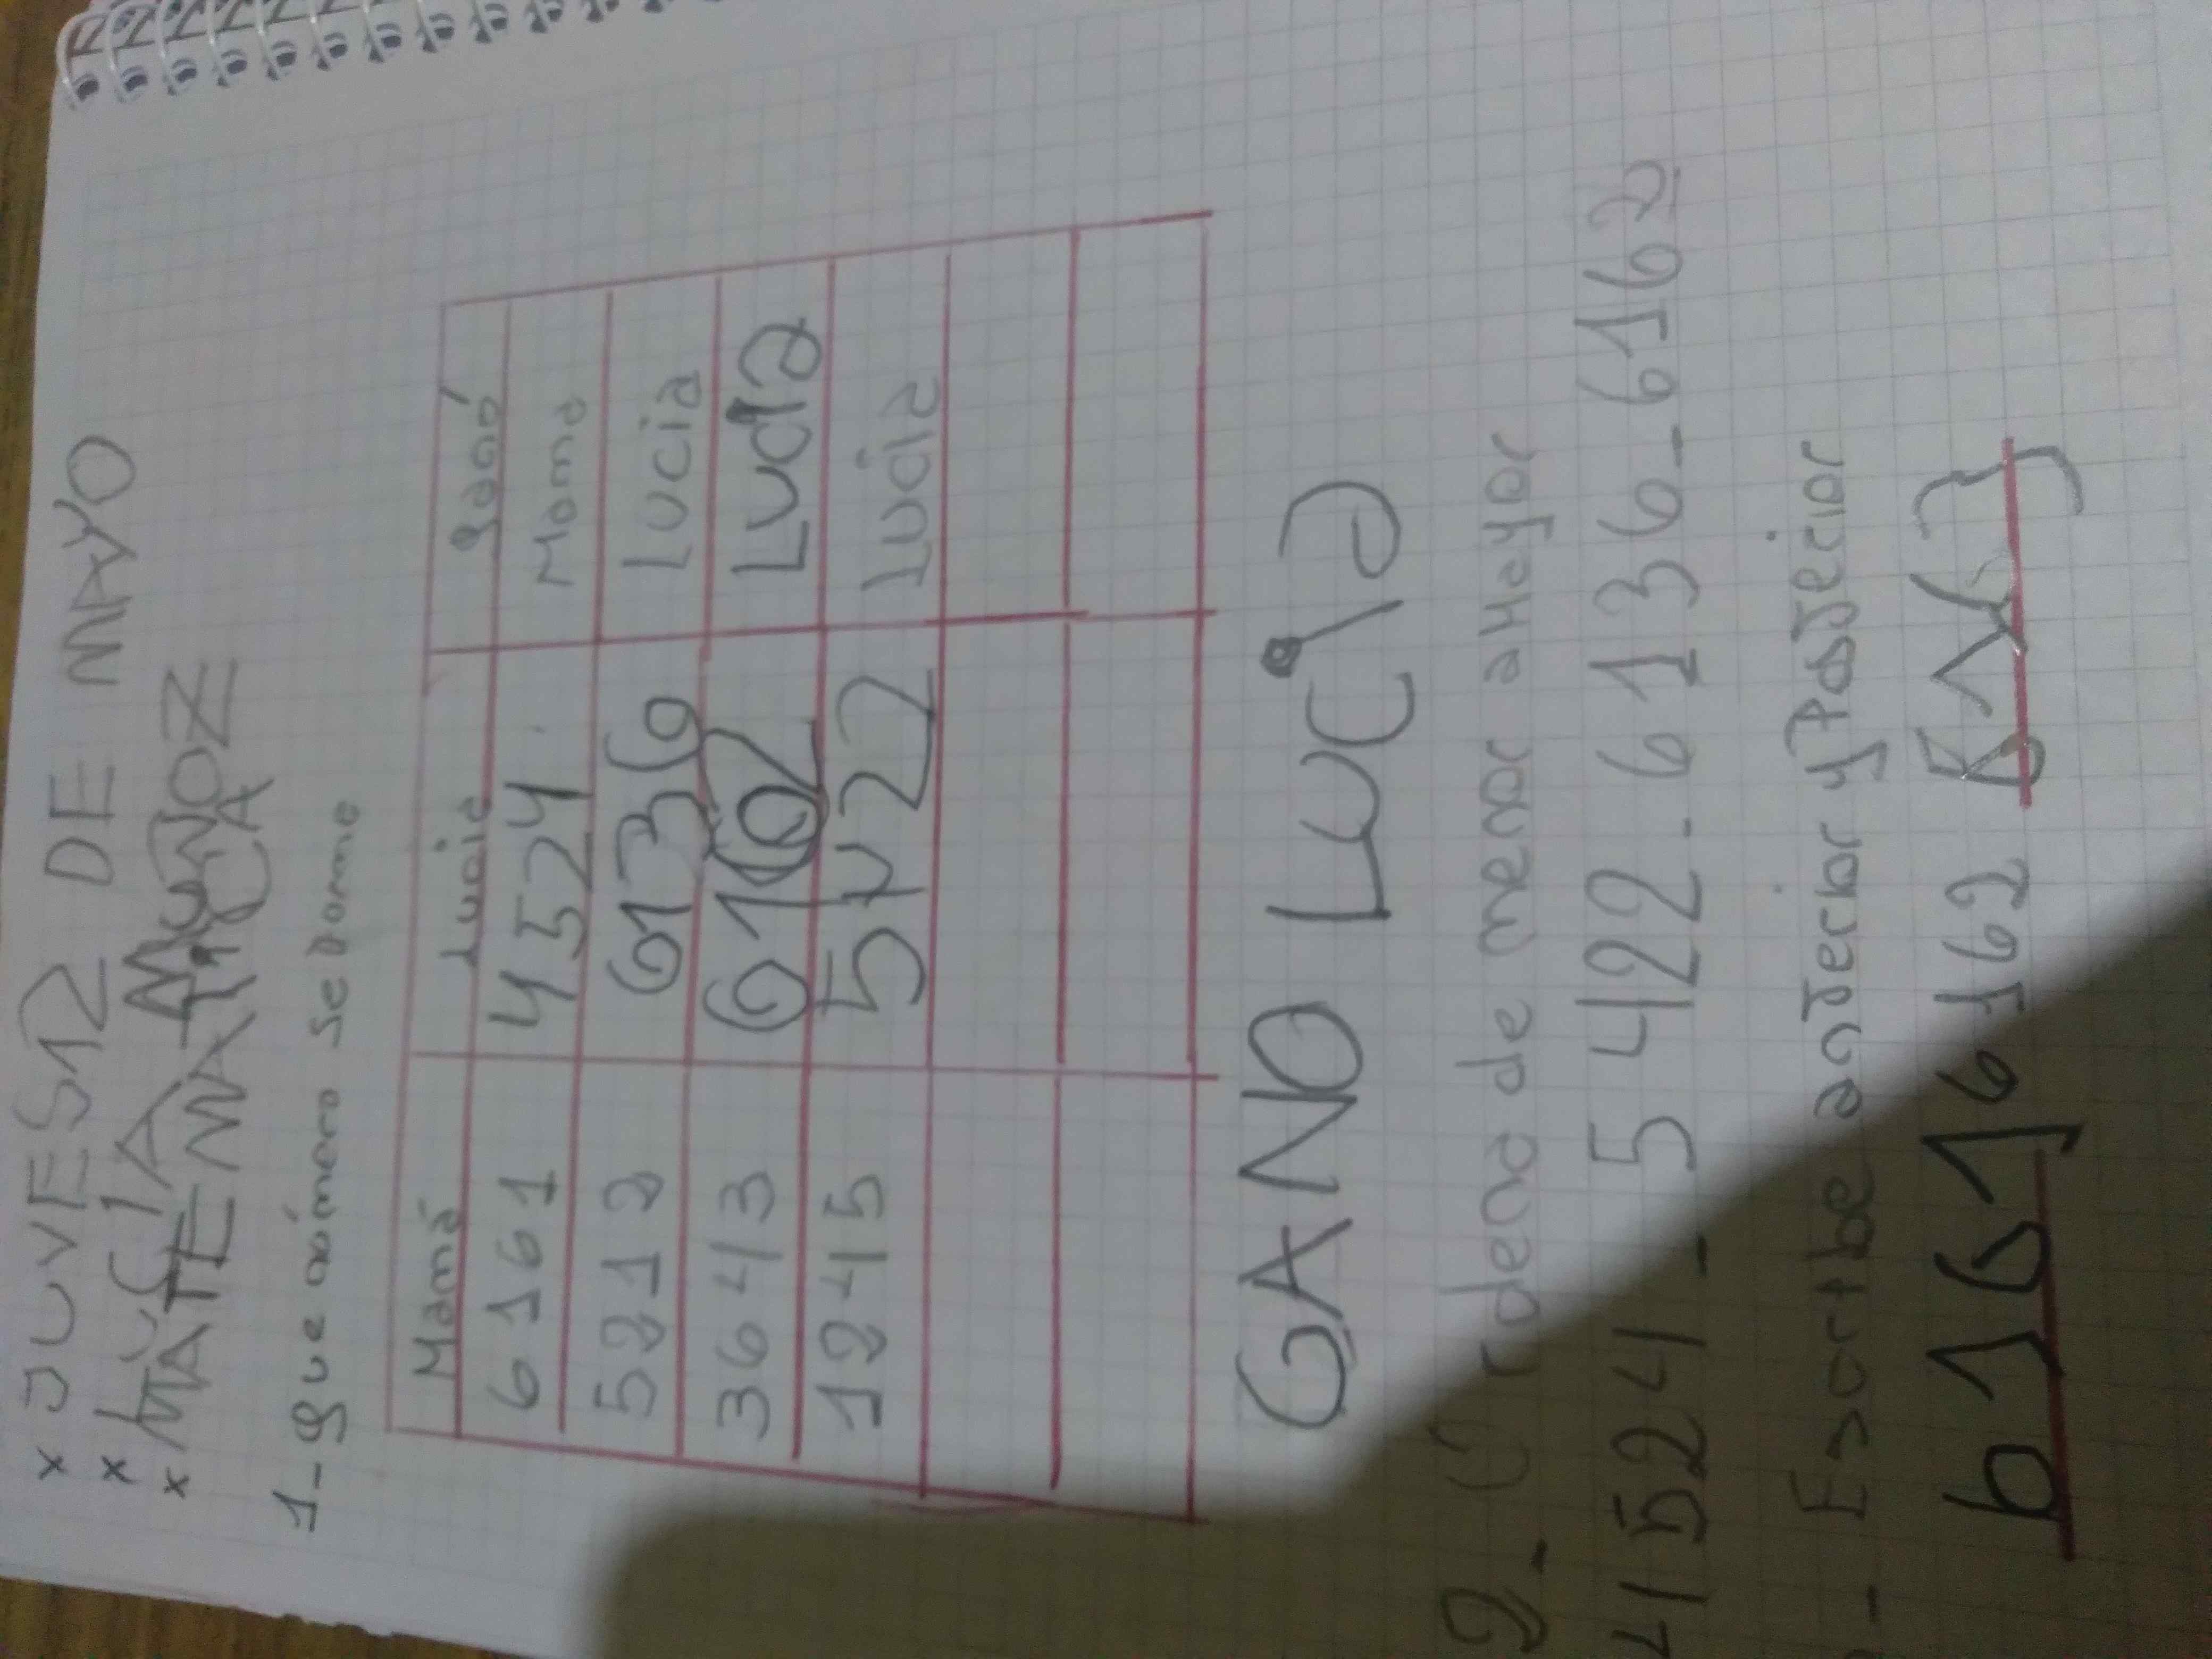 x JUVES12 DE MAYO
x LUCIA MUÑOZ
x MATEMATICA
1- que número se Forme
Mamá Lucia ganó
6161 4524 Mama
5212 6136 Lucia
3643 6162 Lucia
1245 5422 Lucia
GANO Lucia
2- Ordena de menor a Mayor
4524 - 5422 - 6136 - 6162
- Escribe anterior y Posterior
6161 6162